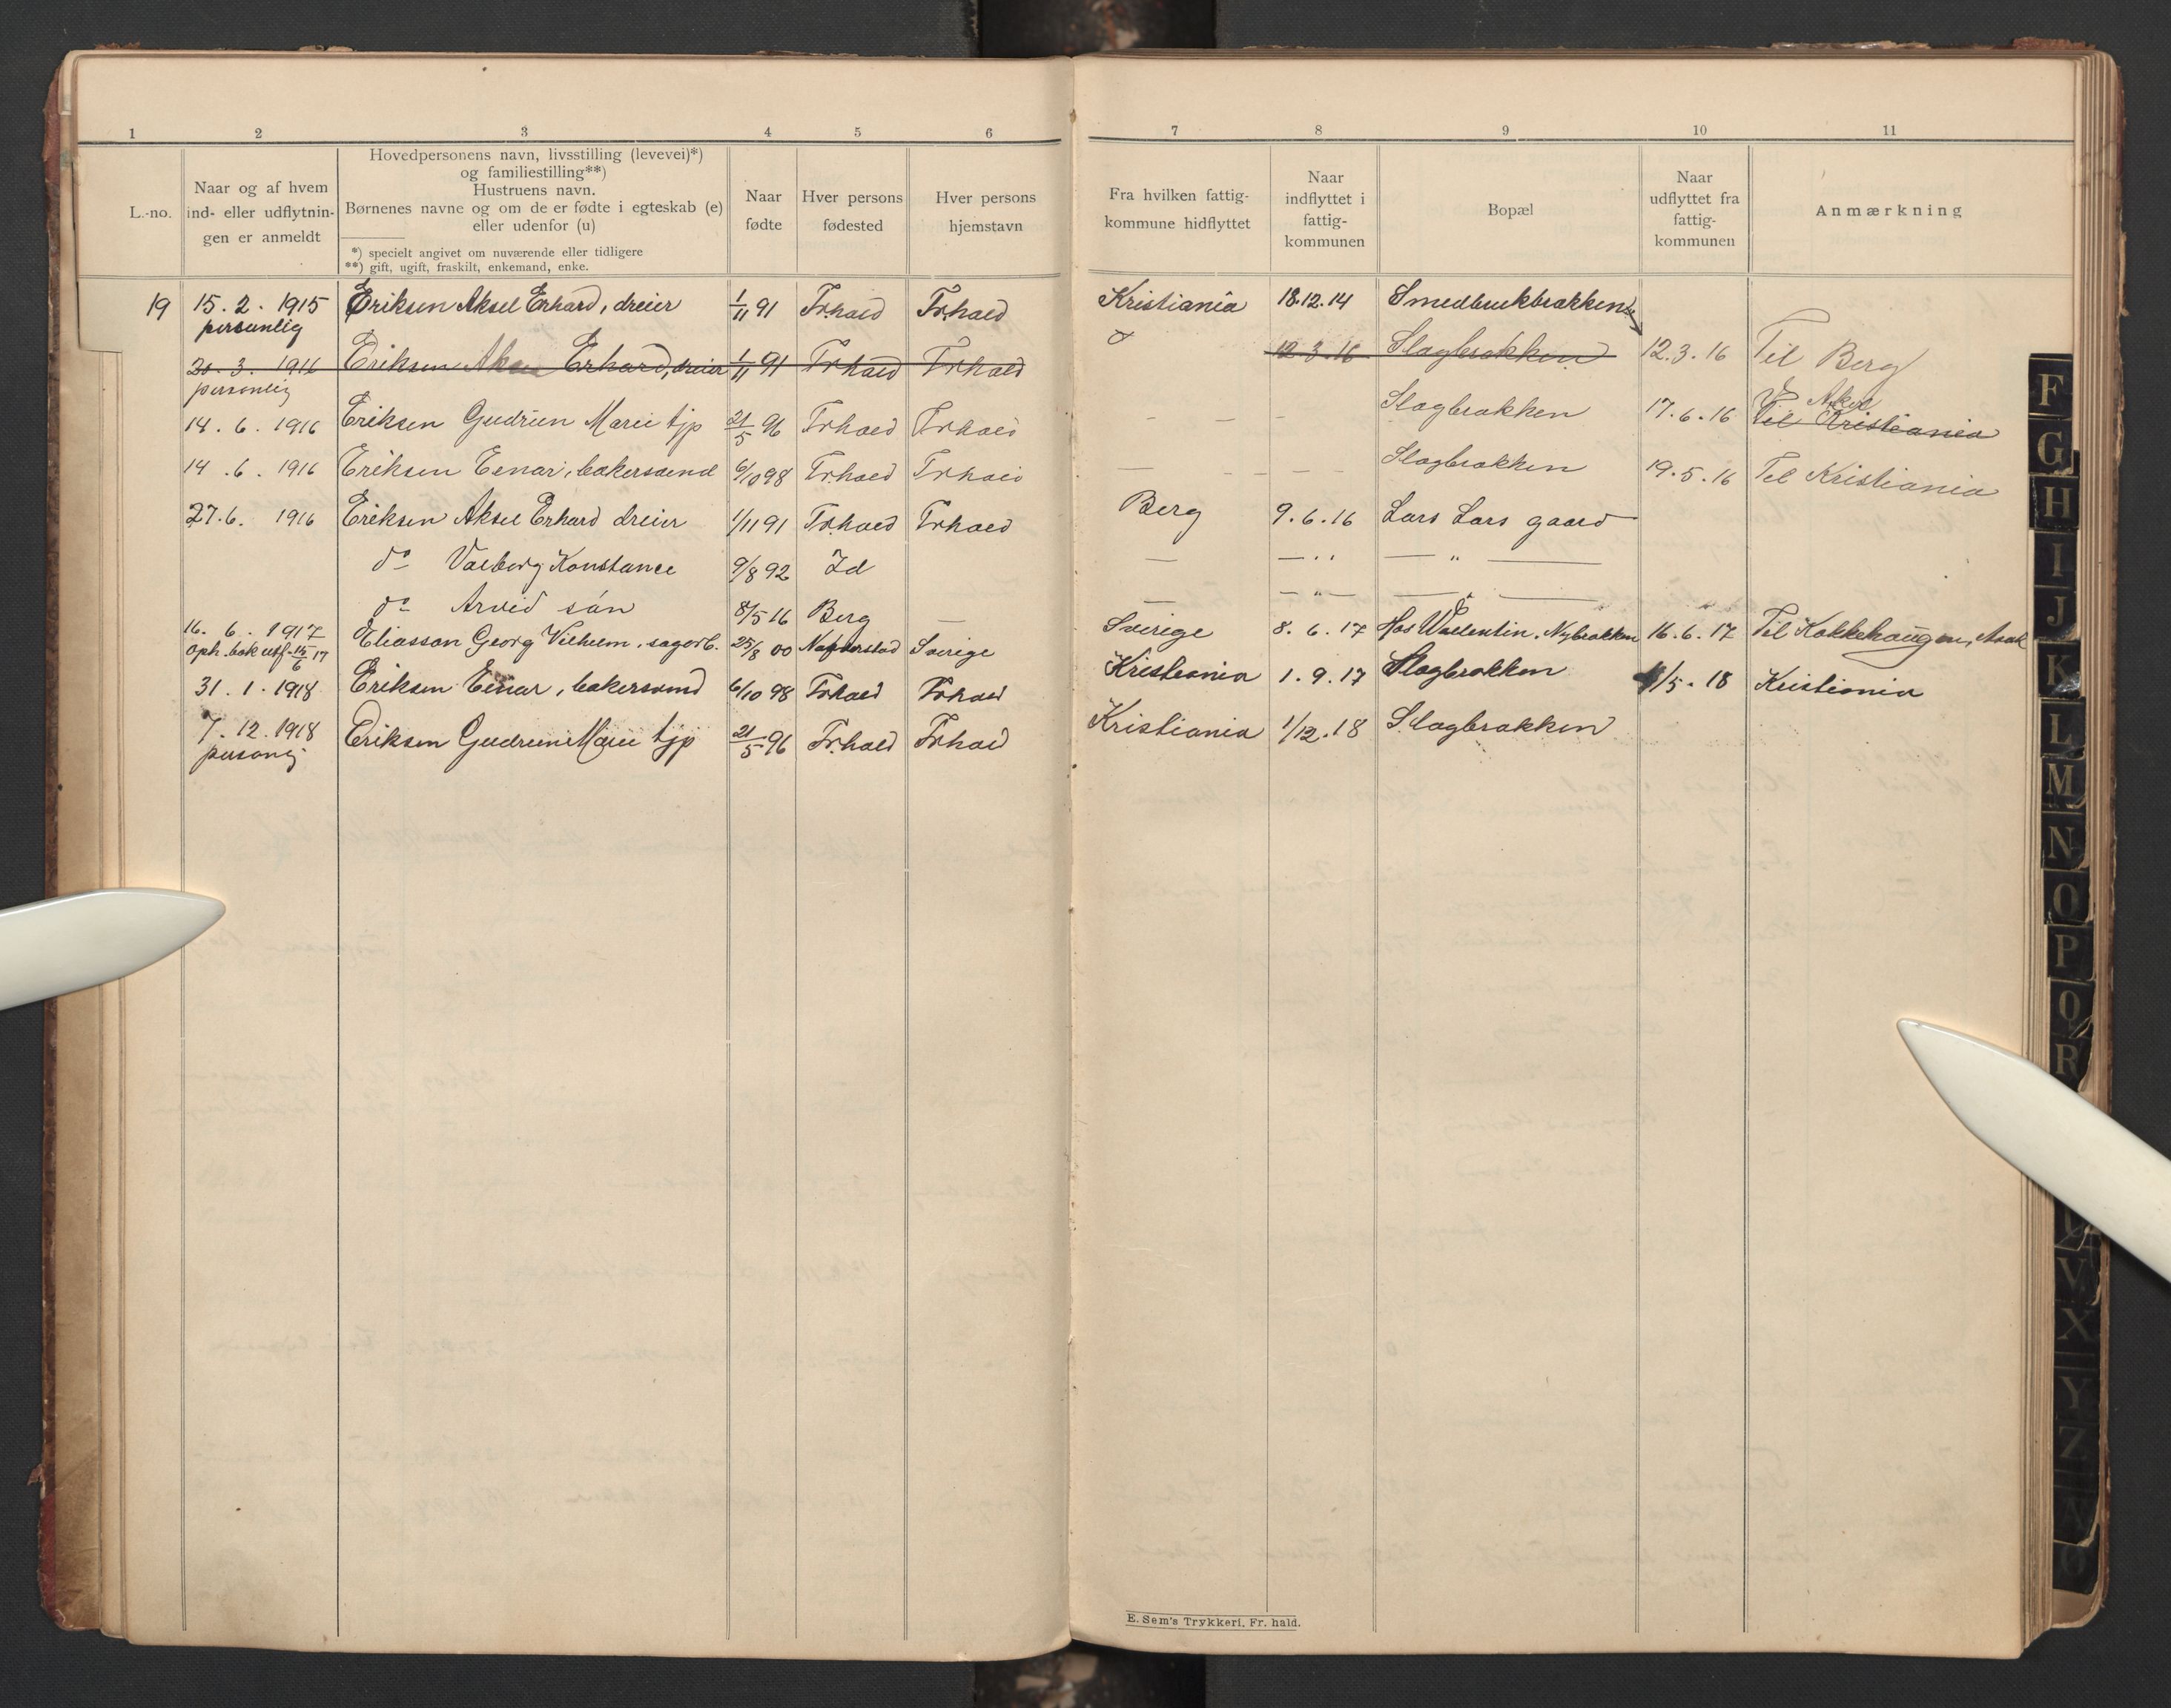 1 2 3 4 5 6 7 8 9 10 11
L.-no.
Naar og af hvem
ind- eller udflytnin-
gen er anmeldt
Hovedpersonens navn, livsstilling (levevei)*)
og familiestilling**)
Hustruens navn.
Børnenes navne og om de er fødte i egteskab (e)
eller udenfor (u)
*) specielt angivet om nuværende eller tidligere
**) gift, ugift, fraskilt, enkemand, enke.
Naar
fødte
Hver persons
fødested
Hver persons
hjemstavn
Fra hvilken fattig-
kommune hidflyttet
Naar
indflyttet i
fattig-
kommunen
Bopæl
Naar
udflyttet fra
fattig-
kommunen
Anmærkning
19 15.2.1915 Eriksen Aksel Erhard, dreier 1/11 91 Fr.hald Frhald Kristiania 18.12.14 Smedbukbrakken
personlig
20.3.1916 Eriksen Aksel Erhard, dreier 1/11 91 Frhald Frhald 12.3.16 Slagbrakken 12.3.16 Til Berg
personlig
14.6.1916 Eriksen Gudrun Marie tjp 21/5 96 Frhald Frhald — — — Slagbrakken 17.6.16 V. Aker
Til Kristiania
14.6.1916 Eriksen Einar, bakersvend 6/10 98 Fr.hald Frhald — — — — Slagbrakken 19.5.16 Til Kristiania
27.6. 1916 Eriksen Aksel Erhard dreier 1/11 91 Fr.hald Frhald Berg 9.6.16 Lars Lars gaard
do Valborg Konstance 9/8 92 Id — — " — " —
do Arvid sön 8/5 16 Berg — — — " — — " —
16. 6. 1917 Eliassan Georg Vilhelm, sagarb. 25/8 00 Sverige Sverige 8.6.17 Hos Walentin. Nybrakken 16.6.17 Til Kokkehaugen, Asak
Oph.bok utf. 15/6 17
31.1.1918 Eriksen Einar, bakersvend 6/10 98 Frhald Frhald Kristiania 1.9.17 Slagbrakken /5.18 Kristiania
7.12.1918 Eriksen Gudrun Marie tjp 21/5 96 Fr.hald Frhald Kristiania 1/12.18 Slagbrakken
personlig
E. Sem's Trykkeri, Fr. hald.
F
G
H
I
J
K
L
M
N
O
P
Q
R
V
X
Y
Z